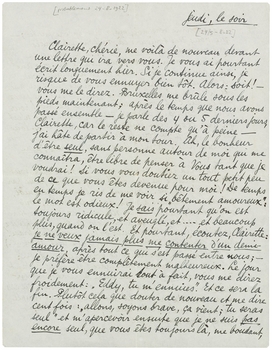 Jeudi, le soir
Clairette, chérie, me voilà de nouveau devant
une lettre qui va vers vous. Je vous ai pourtant
écrit longuement hier. Si je continue ainsi, je
risque de vous ennuyer bien tôt. Alors, soit! -
vous me le direz. Bruxelles me brûle sous les
pieds maintenant; après le temps que nous avons
passé ensemble - je parle des 4 ou 5 derniers jours,
Clairette, car le reste ne compte qu'à peine -
j'ai hâte de partir à mon tour. Eh, le bonheur
d'être seul, sans personne autour de moi qui me
connaîtra, être libre de penser à vous tant que je
voudrai! Si vous vous doutiez un tout petit peu
de ce que vous êtes devenue pour moi! De temps
en temps je ris de me voir si bêtement amoureux;
le mot est odieux! Je sais pourtant qu'on est
toujours ridicule, et aveugle, et - et beaucoup
plus, quand on l'est. Et pourtant, écoutez, Clairette:
je ne veux jamais plus me contenter d'un demi-
amour; après tout ce qui s'est passé entre nous; -
je préfère être complètement malheureux. Le jour
que je vous ennuierai tout à fait, vous me direz
froidement: "Eddy, tu m'ennuies." Et ce sera la
fin. Plutôt cela que douter de nouveau et me dire
cent fois: allons, soyons brave, ça vient; tu seras
seul" et m'apercevoir ensuite que je ne suis pas
encore seul, que vous êtes toujours là, me boudant,